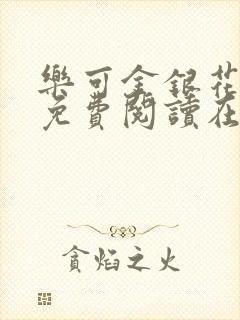 樂可金銀花
免費閱讀在
貪焰之火